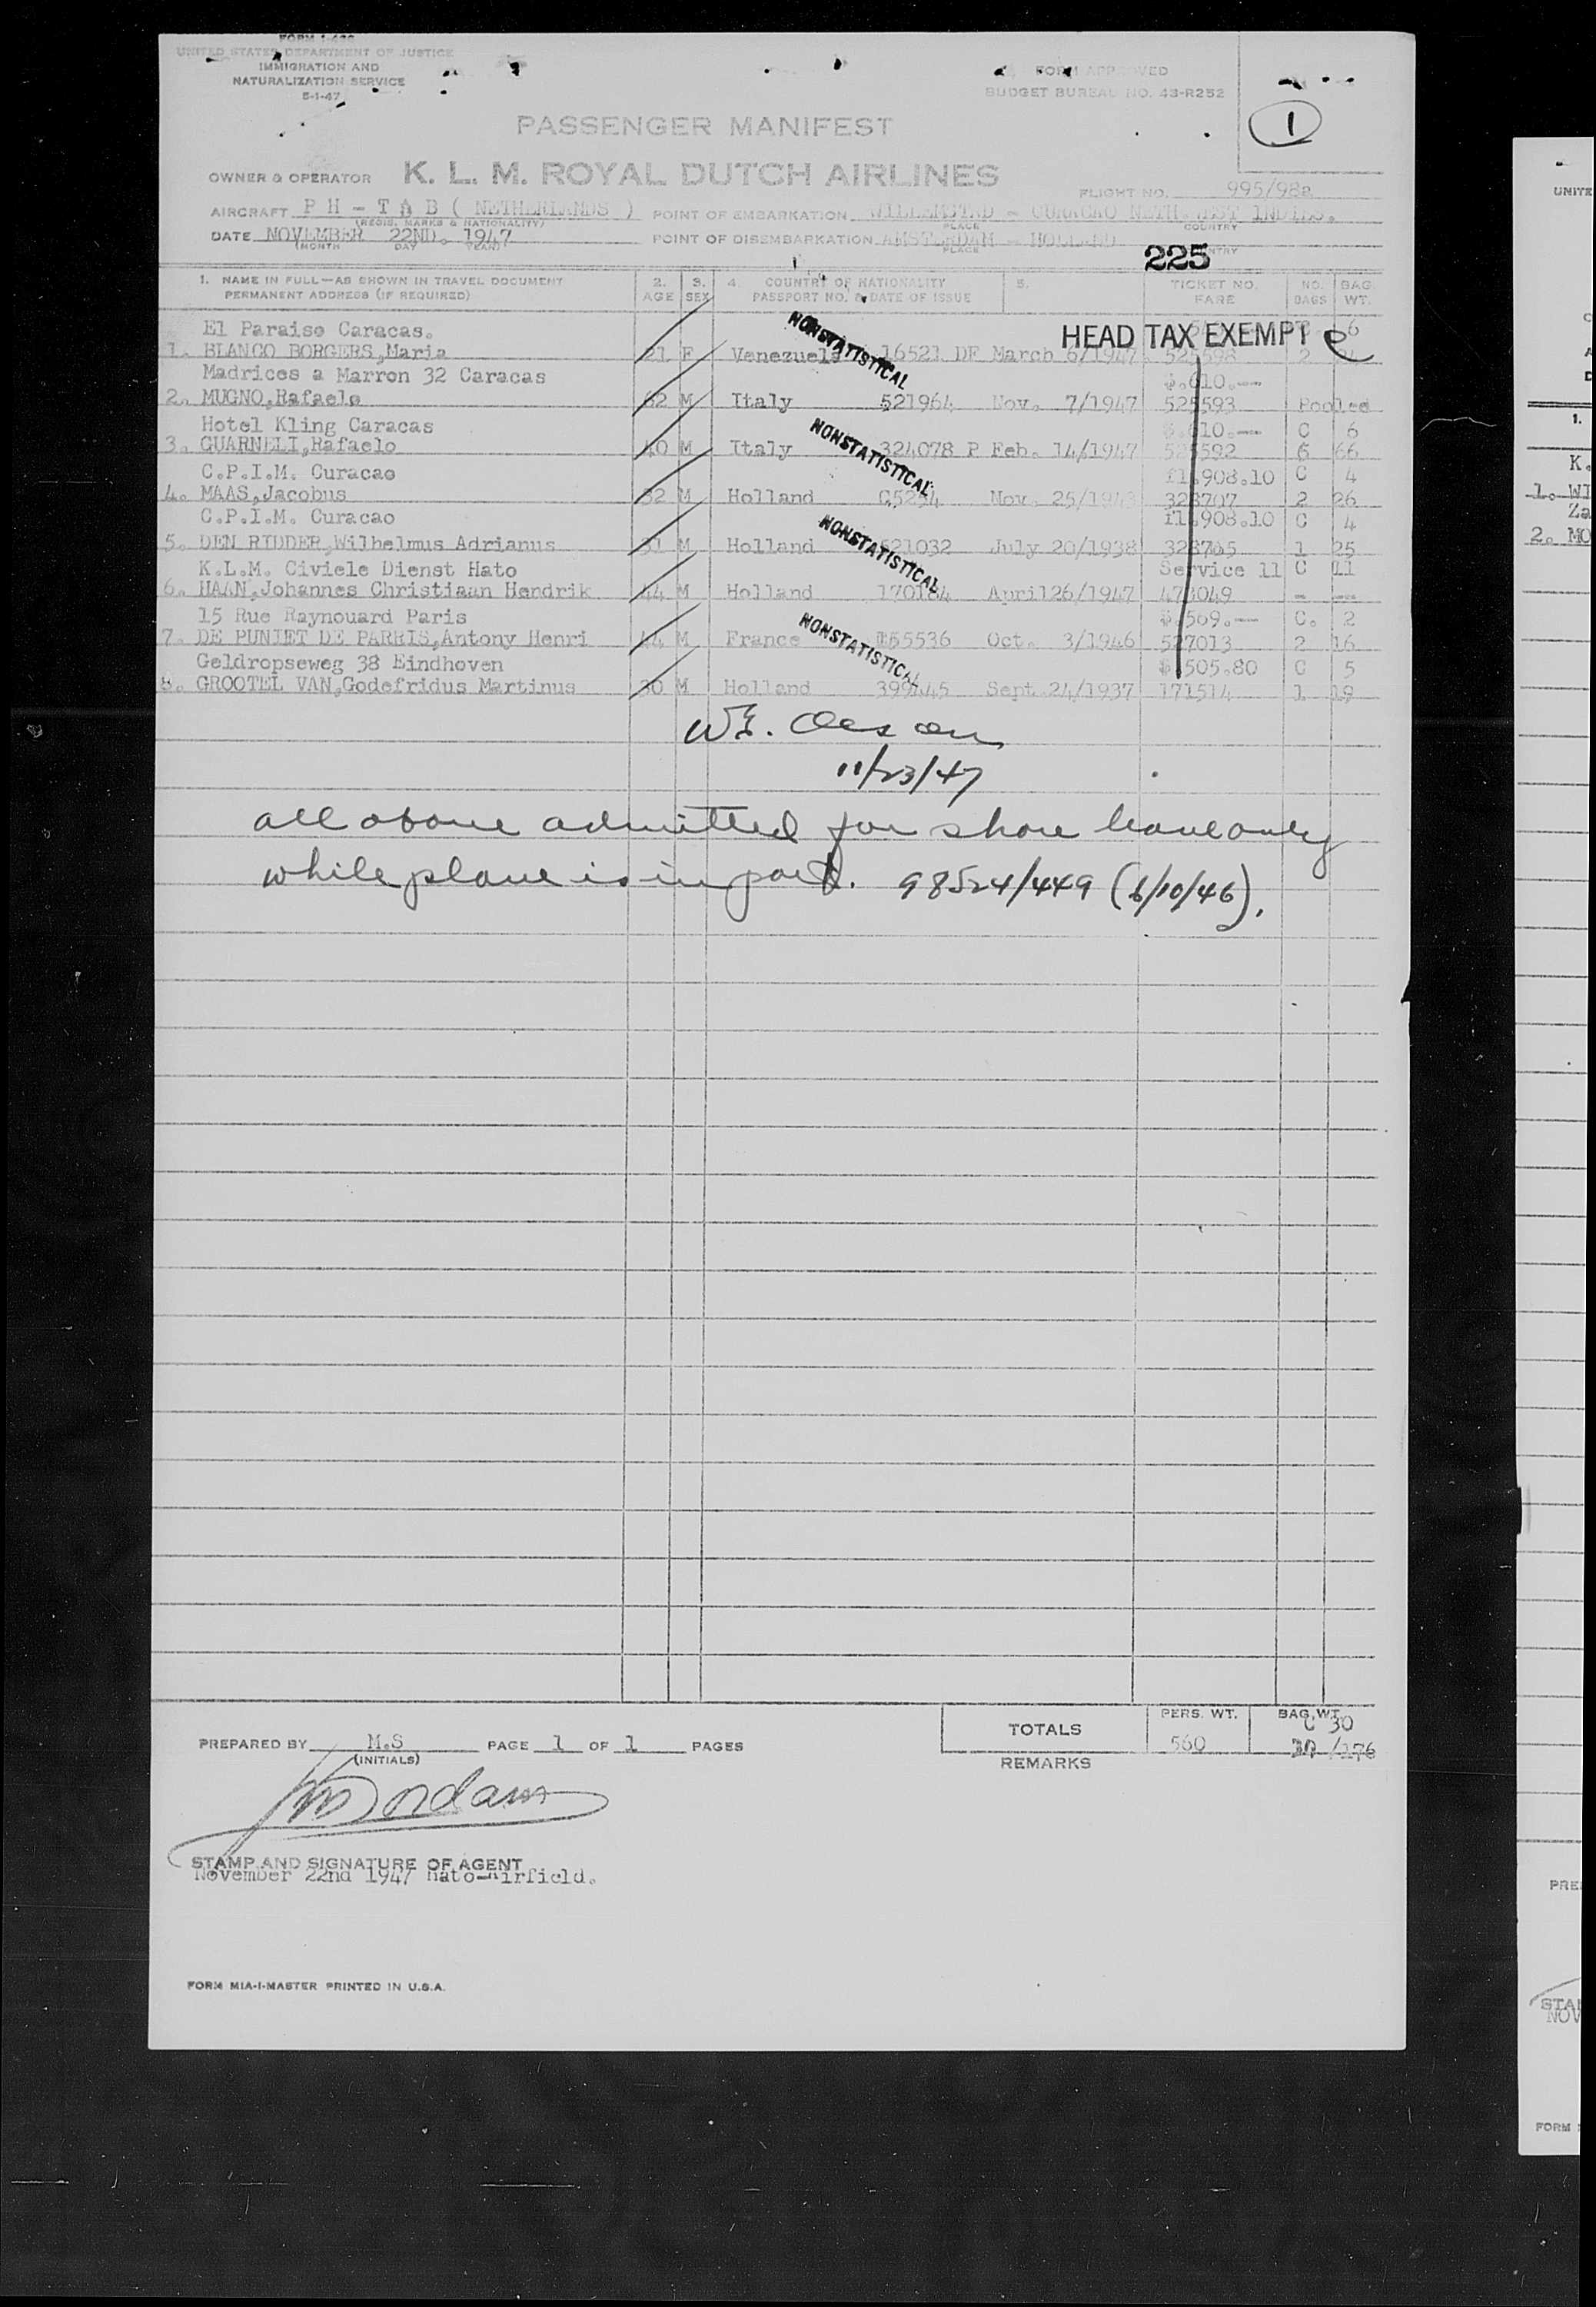 FORM I-466
UNITED STATES DEPARTMENT OF JUSTICE
IMMIGRATION AND
NATURALIZATION SERVICE
5-1-47
FORM APPROVED
BUDGET BUREAU NO. 43-R252
1
PASSENGER MANIFEST
OWNER & OPERATOR K. L. M. ROYAL DUTCH AIRLINES
FLIGHT NO. 995/982
AIRCRAFT P H - T A B ( NETHERLANDS ) POINT OF EMBARKATION WILLEMSTAD - CURACAO NETH.WEST INDIES.
(REGIS. MARKS & NATIONALITY) PLACE COUNTRY
DATE NOVEMBER 22ND. 1947 POINT OF DISEMBARKATION AMSTERDAM - HOLLAND
(MONTH DAY YEAR) PLACE COUNTRY
225
1. NAME IN FULL—AS SHOWN IN TRAVEL DOCUMENT 2. 3. 4. COUNTRY OF NATIONALITY 5. TICKET NO. NO. BAG
PERMANENT ADDRESS (IF REQUIRED) AGE SEX PASSPORT NO. & DATE OF ISSUE FARE BAGS WT.
El Paraiso Caracas. NONSTATISTICAL HEAD TAX EXEMPT 6
1. BLANCO BORGERS,Maria 21 F Venezuela 16521 DF March 6/1947 525598 2
Madrices a Marron 32 Caracas $.610.--
2. MUGNO,Rafaele 62 M Italy 521964 Nov. 7/1947 525593 Pooled
Hotel Kling Caracas NONSTATISTICAL $.610.-- C 6
3. GUARNELI,Rafaelo 40 M Italy 324078 P Feb. 14/1947 525592 6 66
C.P.I.M. Curacao fl.908.10 C 4
4. MAAS,Jacobus 32 M Holland C5234 Nov. 25/1943 328707 2 26
C.P.I.M. Curacao NONSTATISTICAL fl.908.10 C 4
5. DEN RIDDER,Wilhelmus Adrianus 31 M Holland 521032 July 20/1938 328705 1 25
K.L.M. Civiele Dienst Hato Service 11 C 11
6. HAAN,Johannes Christiaan Hendrik 44 M Holland 170184 April26/1947 473049 - --
15 Rue Raynouard Paris NONSTATISTICAL $.569.-- C. 2
7. DE PUNIET DE PARRIS,Antony Henri 44 M France 155536 Oct. 3/1946 527013 2 16
Geldropseweg 38 Eindhoven $.505.80 C 5
8. GROOTEL VAN,Godefridus Martinus 30 M Holland 399445 Sept.24/1937 171514 1 19
W.E. Olesen
11/23/47
all above admitted for shore leave only
while plane is in port. 98524/449 (6/10/46).
TOTALS PERS. WT. BAG WT.
C 30
560 /176
PREPARED BY M.S PAGE 1 OF 1 PAGES
(INITIALS)
REMARKS
STAMP AND SIGNATURE OF AGENT
November 22nd 1947 Hato-Airfield.
FORM MIA-I-MASTER PRINTED IN U.S.A.
UNITE
1.
K.
1. WI
Za
2. MO
PRE
STA
NOV
FORM